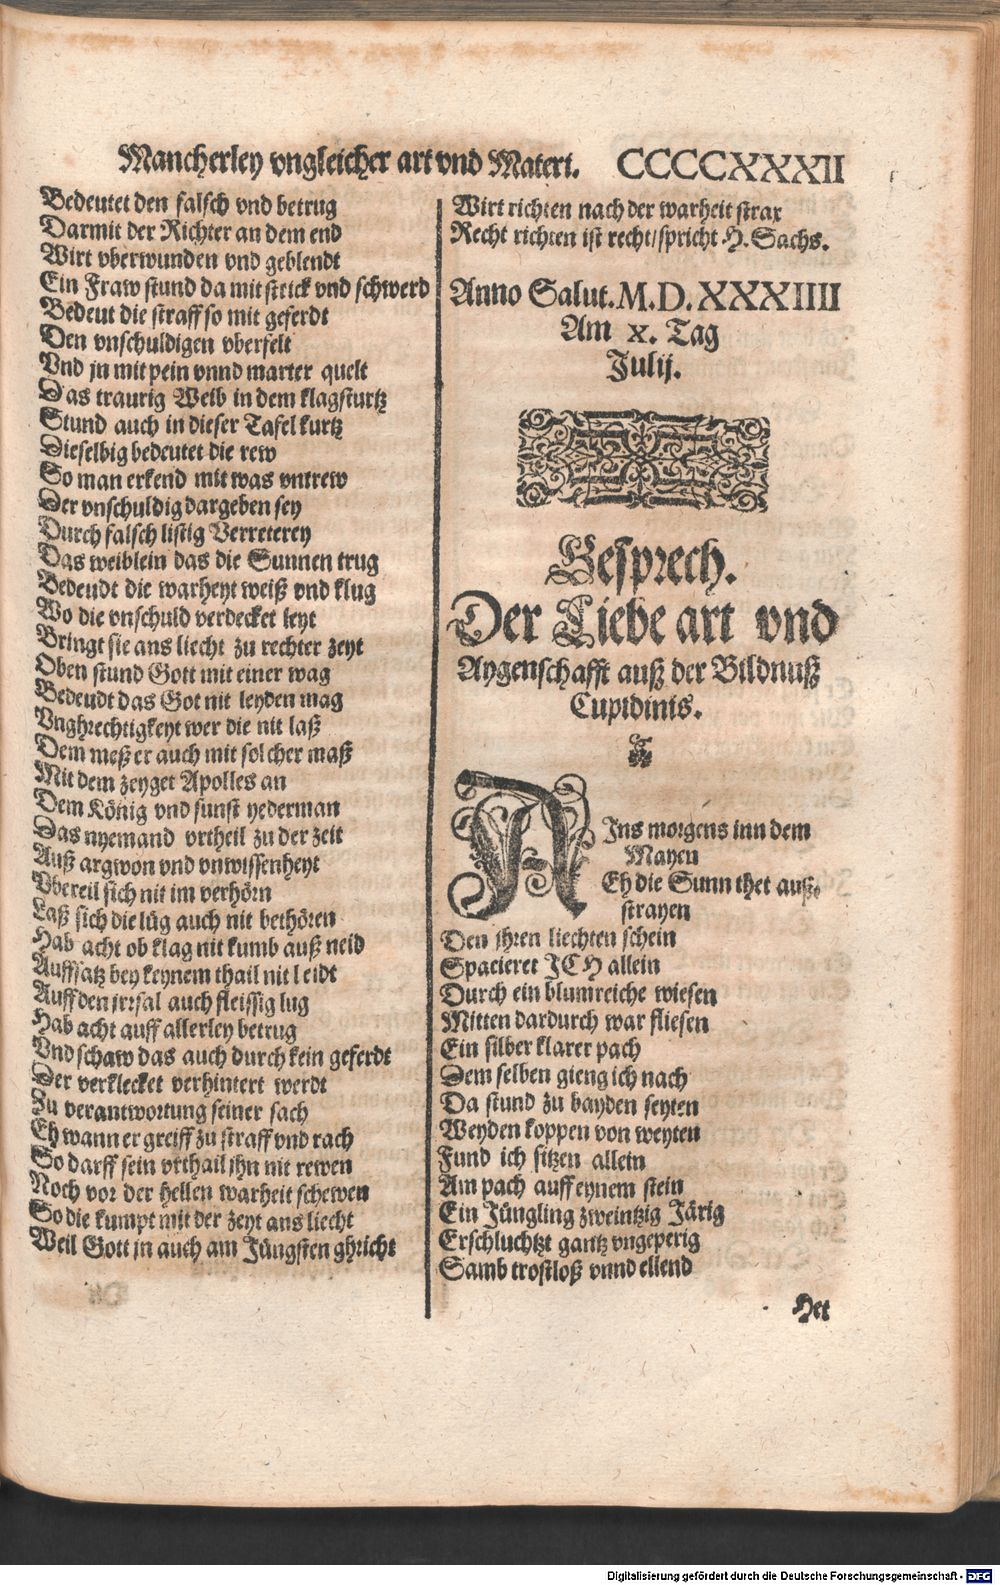 Mancherley vngleicher art vnd Materi. CCCCXXXII
Bedeutet den falsch vnd betrug
Darmit der Richter an dem end
Wirt vberwunden vnd geblendt
Ein Fraw stund da mit strick vnd schwerd
Bedeut die straff so mit geferdt
Den vnschuldigen vberfelt
Vnd jn mit pein vnnd marter quelt
Das traurig Weib in dem klagsturtz
Stund auch in dieser Tafel kurtz
Dieselbig bedeutet die rew
So man erkend mit was vntrew
Der vnschuldig dargeben sey
Durch falsch listig Verreterey
Das weiblein das die Sunnen trug
Bedeudt die warheyt weiß vnd klug
Wo die vnschuld verdecket leyt
Bringt sie ans liecht zu rechter zeyt
Oben stund Gott mit einer wag
Bedeudt das Got nit leyden mag
Vnghrechtigkeyt wer die nit laß
Dem meß er auch mit solcher maß
Mit dem zeyget Apolles an
Dem König vnd sunst yederman
Das nyemand vrtheil zu der zeit
Auß argwon vnd vnwissenheyt
Vbereil sich nit im verhörn
Laß sich die lüg auch nit bethören
Hab acht ob klag nit kumb auß neid
Auffsatz bey keynem thail nit leidt
Auff den jrrsal auch fleissig lug
Hab acht auff allerley betrug
Vnd schaw das auch durch kein geferdt
Der verklecket verhintert werdt
Zu verantwortung seiner sach
Eh wann er greiff zu straff vnd rach
So darff sein vrthail jhn nit rewen
Noch vor der hellen warheit schewen
So die kumpt mit der zeyt ans liecht
Weil Gott jn auch am Jüngsten ghricht
Wirt richten nach der warheit strax
Recht richten ist recht/ spricht H. Sachs.
Anno Salut. M. D. XXXIIII
Am x. Tag
Julij.
Gesprech.
Der Liebe art vnd
Aygenschafft auß der Bildnuß
Cupidinis.
AJns morgens inn dem
Mayen
Eh die Sunn thet auß-
strayen
Den jhren liechten schein
Spacieret JCH allein
Durch ein blumreiche wiesen
Mitten dardurch war fliesen
Ein silber klarer pach
Dem selben gieng ich nach
Da stund zu bayden seyten
Weyden koppen von weyten
Fund ich sitzen allein
Am pach auff eynem stein
Ein Jüngling zweintzig Järig
Erschluchtzt gantz vngeperig
Samb trostloß vnnd ellend
Het
Digitalisierung gefördert durch die Deutsche Forschungsgemeinschaft - DFG